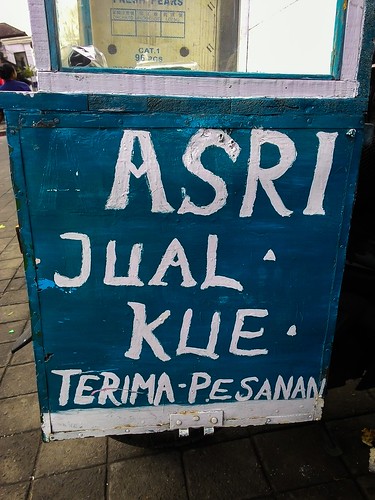 PALHA PEARS
CAT.1
96 PCS
ASRI
JUAL .
KUE .
TERIMA-PESANAN